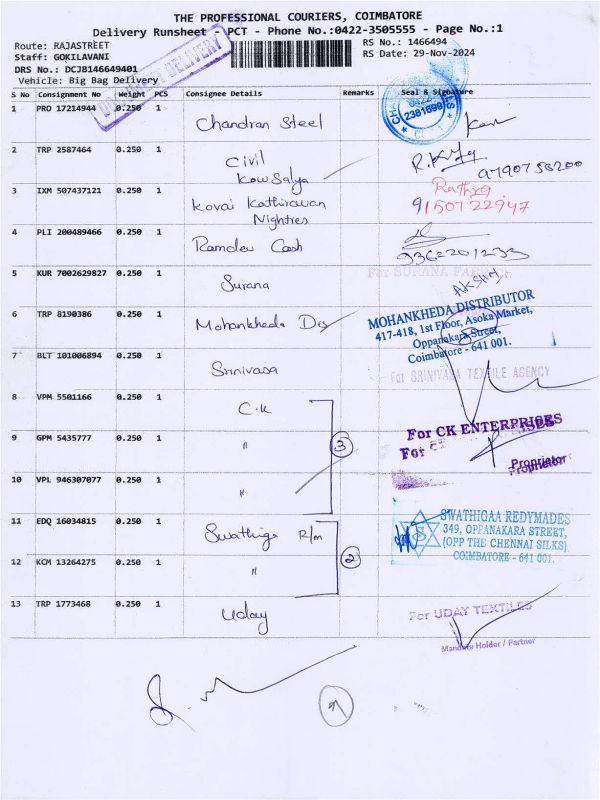 THE PROFESSIONAL COURIERS, COIMBATORE
Delivery Runsheet - PCT - Phone No.:0422-3505555 - Page No.:1
Route: RAJASTREET
RS No.: 1466494
Staff: GOKILAVANI
RS Date: 29-Nov-2024
DRS No.: DCJB146649401
Vehicle: Big Bag Delivery
DELIVERY
S No Consignment No Weight PCS Consignee Details Remarks Seal & Signature
1 PRO 17214944 0.250 1 Chandran Steel
2381699
2 TRP 2587464 0.250 1 Civil
Kowsalya
9790758200
3 IXM 507437121 0.250 1 Kovai Kathiravan
Nighties
9150722947
4 PLI 200489466 0.250 1 Ramdev Cash
9362201233
5 KUR 7002629827 0.250 1 Surana
For SURANA
AKSHA
6 TRP 8190386 0.250 1 Mohankheda Dis
MOHANKHEDA DISTRIBUTOR
417-418, 1st Floor, Asoka Market,
Oppanakara Street,
Coimbatore - 641 001.
7 BLT 101006894 0.250 1 Srinivasa
For SRINIVASA TEXTILE AGENCY
8 VPM 5501166 0.250 1 C.K
For CK ENTERPRISES
9 GPM 5435777 0.250 1 "
3
For
Proprietor
Proprietor
10 VPL 946307077 0.250 1 "
11 EDQ 16034815 0.250 1 Swathiga R/m
SWATHIGAA REDYMADES
349, OPPANAKARA STREET,
(OPP THE CHENNAI SILKS)
COIMBATORE - 641 001.
12 KCM 13264275 0.250 1 "
2
13 TRP 1773468 0.250 1 Uday
For UDAY TEXTILES
Mandate Holder / Partner